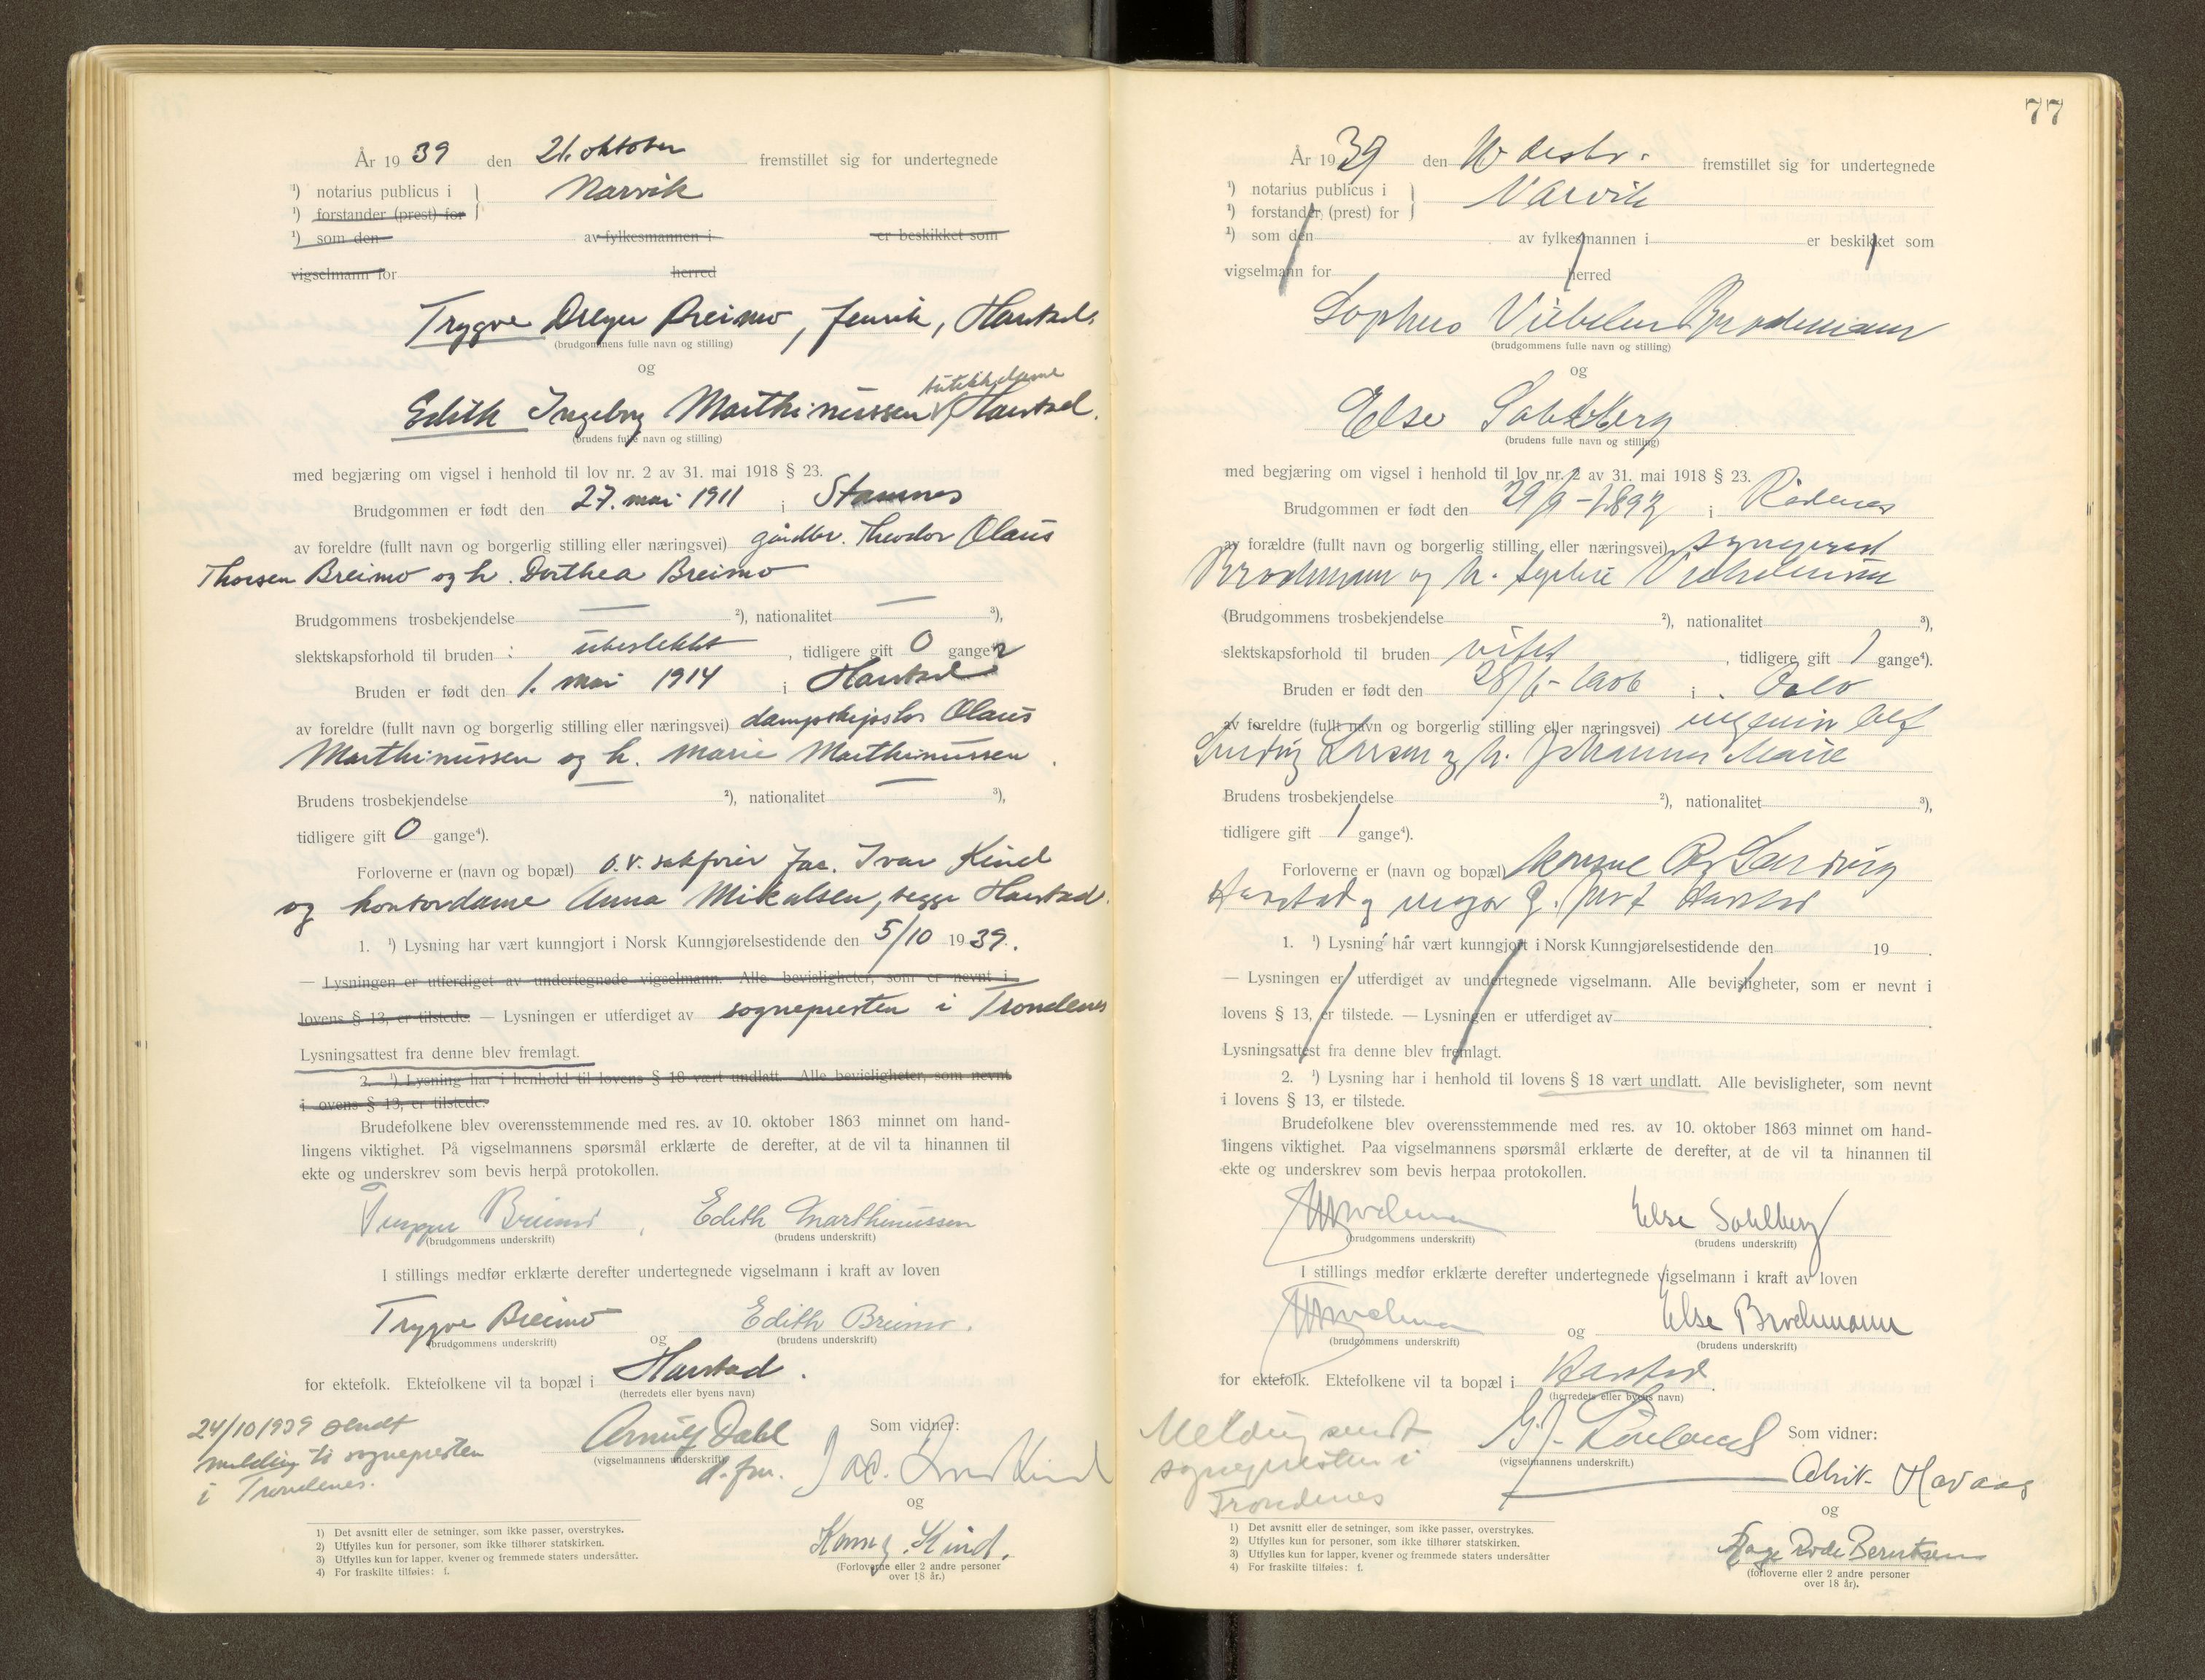 År 1939 den 21. oktober fremstillet sig for undertegnede
¹) notarius publicus i Narvik
¹) forstander (prest) for
¹) som den av fylkesmannen i er beskikket som
vigselmann for herred
Trygve Dreyer Breimo, Harstad.
(brudgommens fulle navn og stilling)
og
butikkdame
Edith Ingeborg Marthinussen Harstad.
(brudens fulle navn og stilling)
med begjæring om vigsel i henhold til lov nr. 2 av 31. mai 1918 § 23.
Brudgommen er født den 27. mai 1911 i Stamnes
av foreldre (fullt navn og borgerlig stilling eller næringsvei) gårdbr. Theodor Olaus
Thorsen Breimo og h. Dorthea Breimo
Brudgommens trosbekjendelse — ²), nationalitet — ³),
slektskapsforhold til bruden : ubeslektet, tidligere gift 0 ganger
Bruden er født den 1. mai 1914 i Harstad
av foreldre (fullt navn og borgerlig stilling eller næringsvei) dampskipsfor. Olaus
Marthinussen og h. Marie Marthinussen.
Brudens trosbekjendelse — ²), nationalitet — ³),
tidligere gift 0 gange⁴).
Forloverne er (navn og bopæl) o.r. sakfører Jac. Ivar Kind
og kontordame Anna Mikalsen, begge Harstad.
1. ¹) Lysning har vært kunngjort i Norsk Kunngjørelsestidende den 5/10 1939.
— Lysningen er utferdiget av undertegnede vigselmann. Alle bevisligheter, som er nevnt i
lovens § 13, er tilstede. — Lysningen er utferdiget av sognepresten i Trondenes
Lysningsattest fra denne blev fremlagt.
2. ¹) Lysning har i henhold til lovens § 18 vært undlatt. Alle bevisligheter, som nevnt
i lovens § 13, er tilstede.
Brudefolkene blev overensstemmende med res. av 10. oktober 1863 minnet om hand-
lingens viktighet. På vigselmannens spørsmål erklærte de derefter, at de vil ta hinannen til
ekte og underskrev som bevis herpå protokollen.
Trygve Breimo, Edith Marthinussen
(brudgommens underskrift) (brudens underskrift)
I stillings medfør erklærte derefter undertegnede vigselmann i kraft av loven
Trygve Breimo og Edith Breimo.
(brudgommens underskrift) (brudens underskrift)
for ektefolk. Ektefolkene vil ta bopæl i Harstad.
(herredets eller byens navn)
24/10 1939 sendt
melding til sognepresten
i Trondenes.
Arnulf Dahl
(vigselmannens underskrift)
d. fm.
Som vidner:
Jac. Ivar Kind
og
Kind.
(Forloverne eller 2 andre personer
over 18 år.)
1) Det avsnitt eller de setninger, som ikke passer, overstrykes.
2) Utfylles kun for personer, som ikke tilhører statskirken.
3) Utfylles kun for lapper, kvener og fremmede staters undersåtter.
4) For fraskilte tilføies: f.
77
År 1939 den fremstillet sig for undertegnede
¹) notarius publicus i Narvik
¹) forstander (prest) for
¹) som den av fylkesmannen i er beskikket som
vigselmann for herred
Sophus Vilhelm Brochmann
(brudgommens fulle navn og stilling)
og
Else Sohlberg
(brudens fulle navn og stilling)
med begjæring om vigsel i henhold til lov nr. 2 av 31. mai 1918 § 23.
Brudgommen er født den 29/9 - 1893 i Rødenes
av forældre (fullt navn og borgerlig stilling eller næringsvei) sogneprest
Brochmann og h. Sophie Vilhelmine
(Brudgommens trosbekjendelse ²), nationalitet ³),
slektskapsforhold til bruden intet, tidligere gift 1 gange⁴).
Bruden er født den 28/6 - 1906 i Oslo
av foreldre (fullt navn og borgerlig stilling eller næringsvei) ingeniør
Ludvig Larsen og h. Johanna Marie
Brudens trosbekjendelse ²), nationalitet ³),
tidligere gift 1 gange⁴).
Forloverne er (navn og bopæl)
Harstad og major Harstad
1. ¹) Lysning har vært kunngjort i Norsk Kunngjørelsestidende den 19 .
— Lysningen er utferdiget av undertegnede vigselmann. Alle bevisligheter, som er nevnt i
lovens § 13, er tilstede. — Lysningen er utferdiget av .
Lysningsattest fra denne blev fremlagt.
2. ¹) Lysning har i henhold til lovens § 18 vært undlatt. Alle bevisligheter, som nevnt
i lovens § 13, er tilstede.
Brudefolkene blev overensstemmende med res. av 10. oktober 1863 minnet om hand-
lingens viktighet. Paa vigselmannens spørsmål erklærte de derefter, at de vil ta hinannen til
ekte og underskrev som bevis herpaa protokollen.
Brochmann Else Sohlberg
(brudgommens underskrift) (brudens underskrift)
I stillings medfør erklærte derefter undertegnede vigselmann i kraft av loven
Brochmann og Else Brochmann
(brudgommens underskrift) (brudens underskrift)
for ektefolk. Ektefolkene vil ta bopæl i Harstad.
(herredets eller byens navn)
Melding sendt
sognepresten i
Trondenes
(vigselmannens underskrift.)
Som vidner:
Havaas
og
Aage Rode Berntsen
(forloverne eller 2 andre personer
over 18 år).
1) Det avsnitt eller de setninger, som ikke passer, overstrykes.
2) Utfylles kun for personer, som ikke tilhører statskirken.
3) Utfylles kun for lapper, kvener og fremmede staters undersåtter
4) For fraskilte tilføies: f.